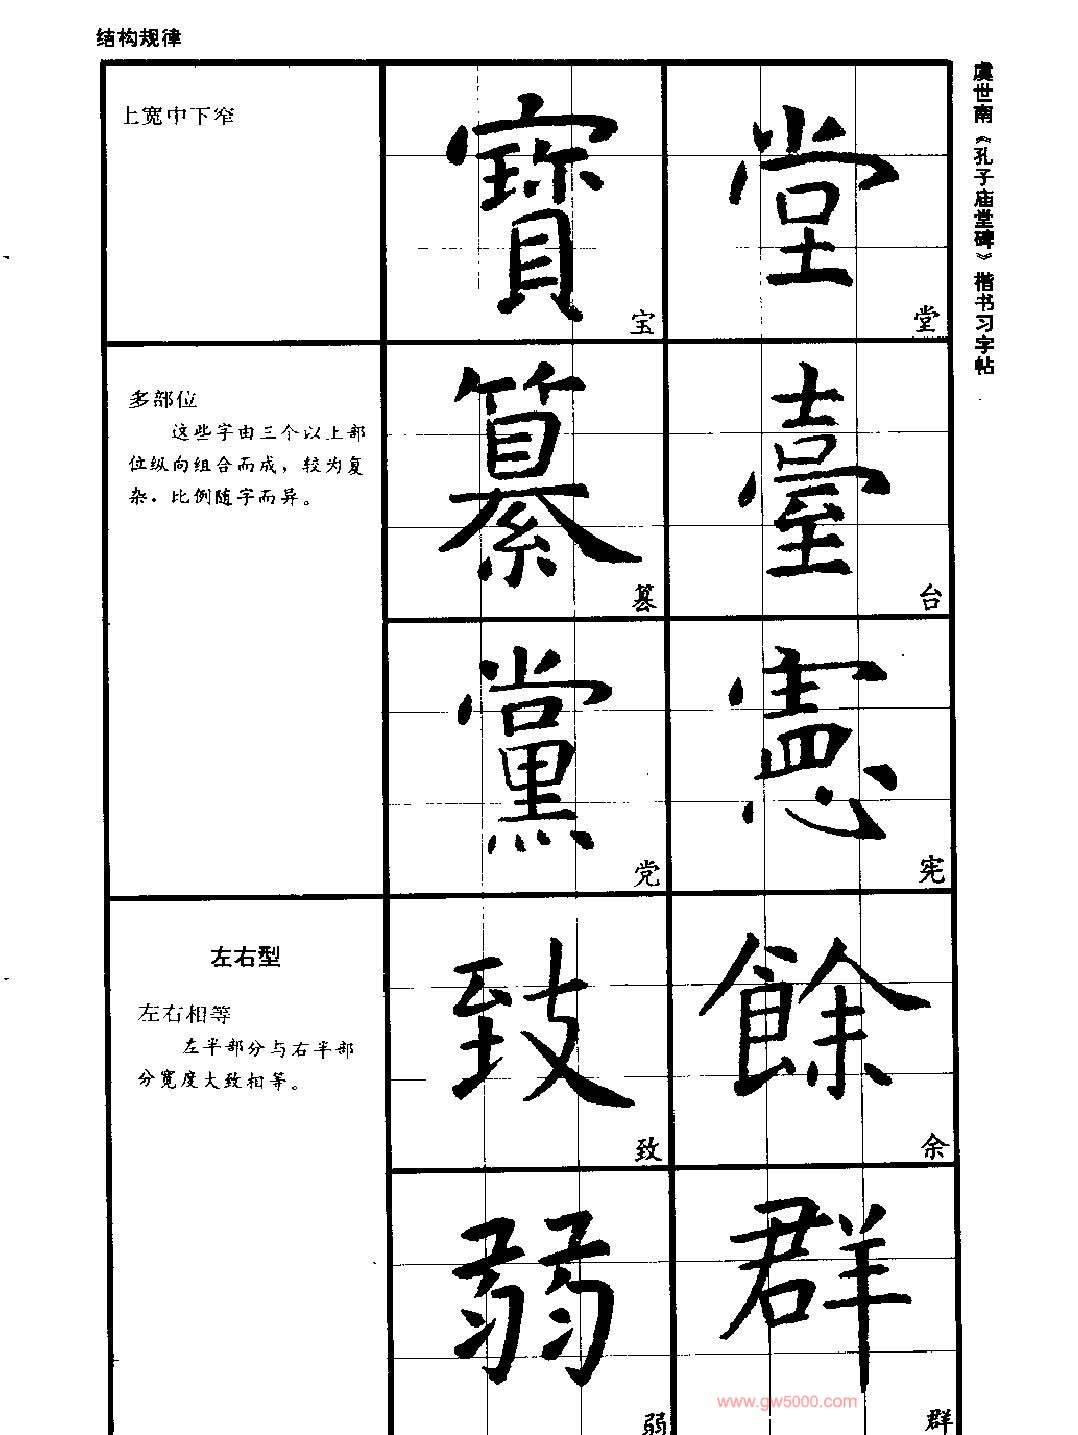 结构规律
虞世南《孔子庙堂碑》楷书习字帖
上宽中下窄
寶
宝
堂
堂
多部位
这些字由三个以上部
位纵向组合而成，较为复
杂，比例随字而异。
纂
篡
臺
台
黨
党
憲
宪
左右型
左右相等
左半部分与右半部
分宽度大致相等。
致
致
餘
余
弱
弱
群
群
www.gw5000.com